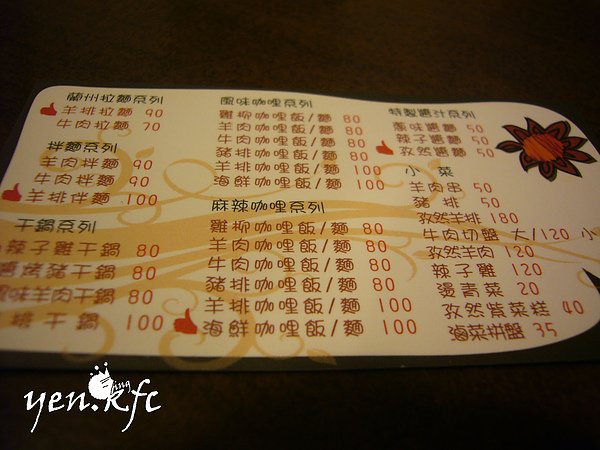 蘭州拉麵系列
羊排拉麵 90
牛肉拉麵 70
拌麵系列
羊肉拌麵 90
牛肉拌麵 90
羊排伴麵 100
干鍋系列
辣子雞干鍋 80
烤豬干鍋 80
味羊肉干鍋 80
干鍋 100
風味咖哩系列
雞柳咖哩飯/麵 80
羊肉咖哩飯/麵 80
牛肉咖哩飯/麵 80
豬排咖哩飯/麵 80
羊排咖哩飯/麵 100
海鮮咖哩飯/麵 100
麻辣咖哩系列
雞柳咖哩飯/麵 80
羊肉咖哩飯/麵 80
牛肉咖哩飯/麵 80
豬排咖哩飯/麵 80
羊排咖哩飯/麵 100
海鮮咖哩飯/麵 100
特製醬汁系列
蔥味醬麵 50
辣子醬麵 50
孜然醬麵 50
小菜
羊肉串 50
豬排 50
孜然羊排 180
牛肉切盤 大/120 小
孜然羊肉 120
辣子雞 120
燙青菜 20
孜然糕 40
滷菜拼盤 35
yen.kfc